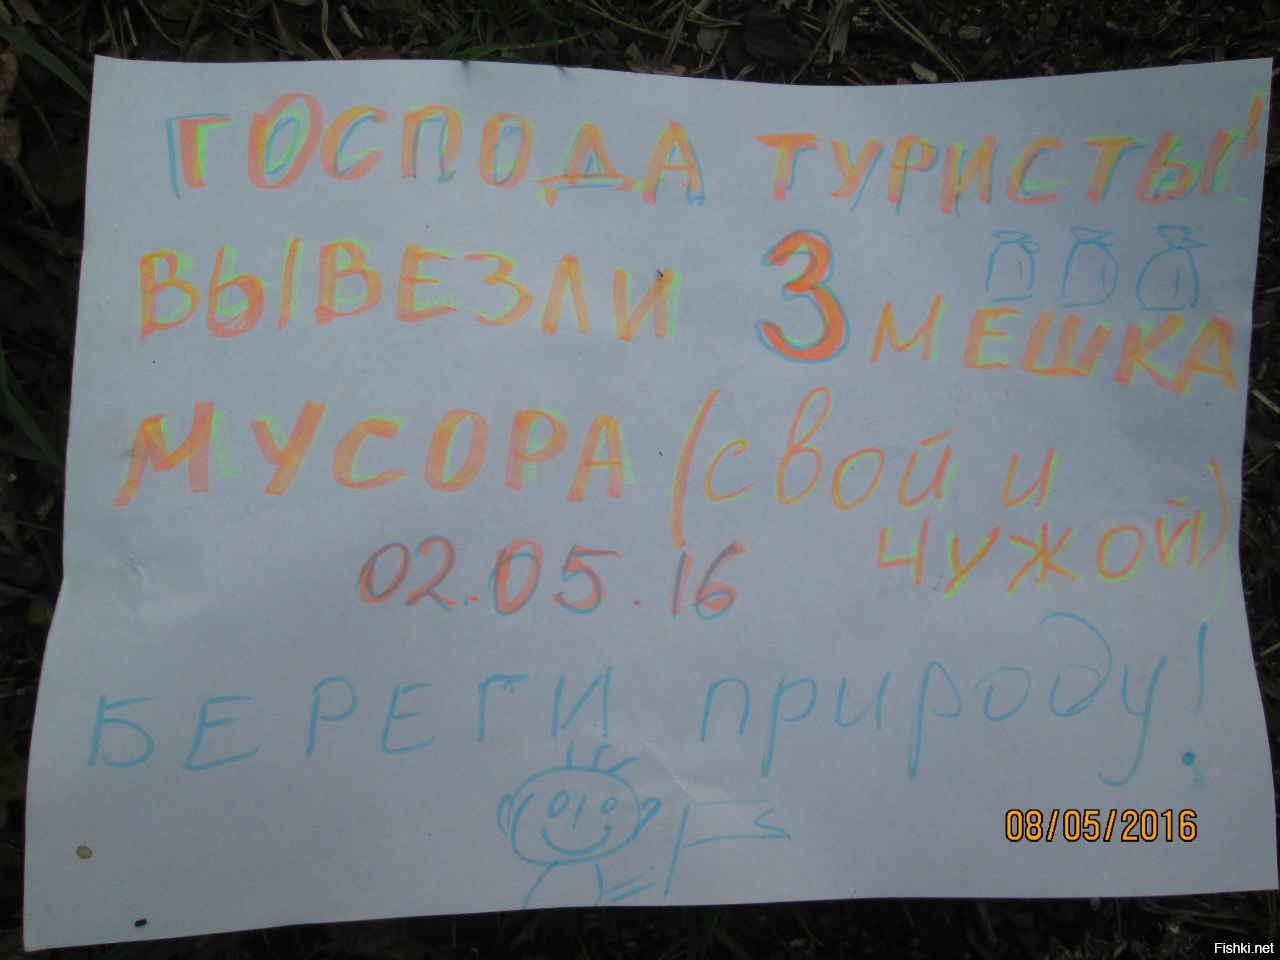 ГОСПОДА ТУРИСТЫ!
ВЫВЕЗЛИ 3 МЕШКА
МУСОРА (свой и
чужой)
02.05.16
БЕРЕГИ природу!
08/05/2016
Fishki.net